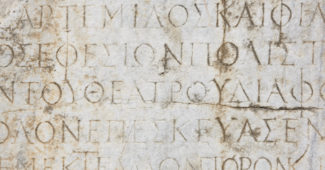 ΑΡΤΕΜΙΔΟΣΚΑΙΦΙΛ
ΟΣΕΦΕΣΙΩΝΠΟΛΙΣΤ
ΝΤΟΥΘΕΑΤΡΟΥΔΙΑΦ
ΟΛΟΝΕΠΕΣΚΕΥΑΣΕΝ